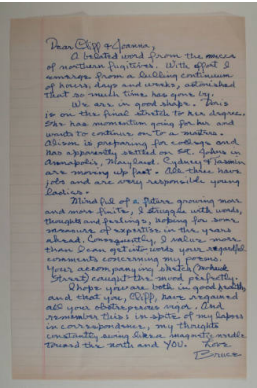 Dear Cliff & Joanna,
A belated word from the
of northern fugitives. With effort I
emerge from a lulling continuum
of hours, days and weeks, astonished
that so much time has gone by.
We are in good shape. Doris
is on the final stretch to her degree.
She has momentum going for her and
wants to continue on to a masters.
Alison is preparing for college and
has apparently settled on St. Johns in
Annapolis, Maryland. Cydney & Tasmin
are moving up fast. All three have
jobs and are very responsible young
ladies.
Mindful of a future, growing more
and more finite, I struggle with words,
thoughts and feelings, hoping for some
measure of expertise in the years
ahead. Consequently, I value more
than I can get into words your
comments concerning my poems.
Your accompanying sketch
Street) caught the mood perfectly.
I hope you are both in good health
and that you, Cliff, have regained
all your obstreperous vigor. And
remember this: in spite of my lapses
in correspondence, my thoughts
constantly swing like a magnetic needle
toward the north and YOU. Love,
Bruce